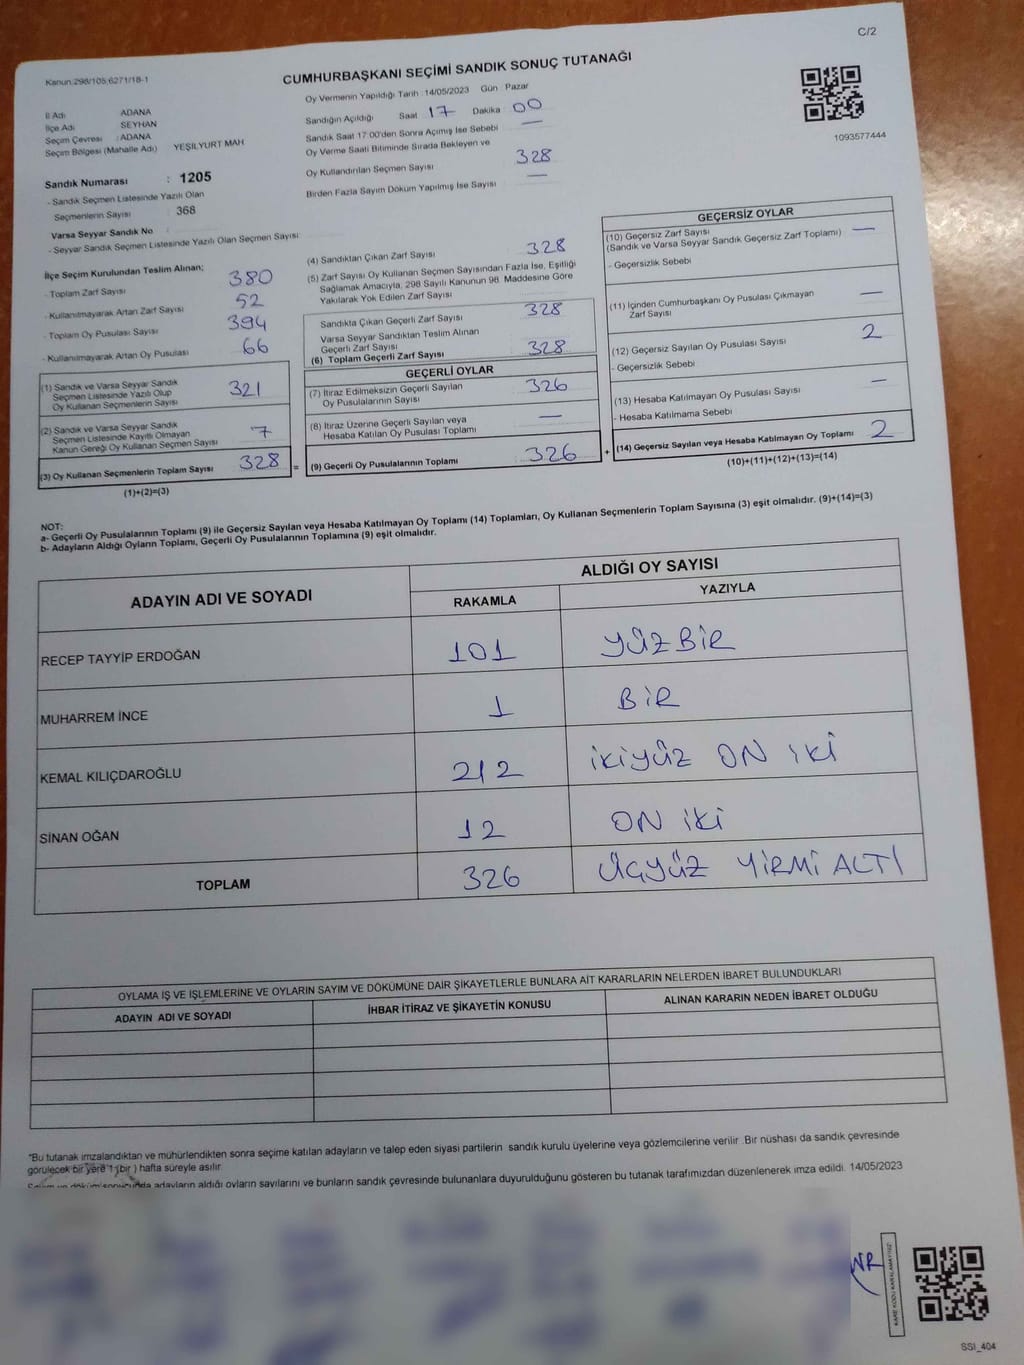 C/2
Kanun:298/105,6271/18-1
CUMHURBAŞKANI SEÇİMİ SANDIK SONUÇ TUTANAĞI
İl Adı ADANA
İlçe Adı SEYHAN
Seçim Çevresi : ADANA
Seçim Bölgesi (Mahalle Adı) YEŞİLYURT MAH
Oy Vermenin Yapıldığı Tarih :14/05/2023 Gün Pazar
Sandığın Açıldığı Saat 17 Dakika 00
Sandık Saat 17:00'den Sonra Açımış İse Sebebi —
Oy Verme Saati Bitiminde Sırada Bekleyen ve
Oy Kullandırılan Seçmen Sayısı 328
Birden Fazla Sayım Döküm Yapılmış İse Sayısı —
1093577444
Sandık Numarası : 1205
- Sandık Seçmen Listesinde Yazılı Olan
Seçmenlerin Sayısı : 368
Varsa Seyyar Sandık No :
- Seyyar Sandık Seçmen Listesinde Yazılı Olan Seçmen Sayısı:
İlçe Seçim Kurulundan Teslim Alınan;
- Toplam Zarf Sayısı 380
- Kullanılmayarak Artan Zarf Sayısı 52
- Toplam Oy Pusulası Sayısı 394
- Kullanılmayarak Artan Oy Pusulası 66
(1) Sandık ve Varsa Seyyar Sandık
Seçmen Listesinde Yazılı Olup
Oy Kullanan Seçmenlerin Sayısı 321
(2) Sandık ve Varsa Seyyar Sandık
Seçmen Listesinde Kayıtlı Olmayan
Kanun Gereği Oy Kullanan Seçmen Sayısı 7
(3) Oy Kullanan Seçmenlerin Toplam Sayısı 328 =
(1)+(2)=(3)
(4) Sandıktan Çıkan Zarf Sayısı 328
(5) Zarf Sayısı Oy Kullanan Seçmen Sayısından Fazla İse, Eşitliği
Sağlamak Amacıyla, 298 Sayılı Kanunun 98. Maddesine Göre
Yakılarak Yok Edilen Zarf Sayısı
Sandıkta Çıkan Geçerli Zarf Sayısı 328
Varsa Seyyar Sandıktan Teslim Alınan
Geçerli Zarf Sayısı
(6) Toplam Geçerli Zarf Sayısı 328
GEÇERLİ OYLAR
(7) İtiraz Edilmeksizin Geçerli Sayılan
Oy Pusulalarının Sayısı 326
(8) İtiraz Üzerine Geçerli Sayılan veya
Hesaba Katılan Oy Pusulası Toplamı —
(9) Geçerli Oy Pusulalarının Toplamı 326 +
GEÇERSİZ OYLAR
(10) Geçersiz Zarf Sayısı
(Sandık ve Varsa Seyyar Sandık Geçersiz Zarf Toplamı) —
- Geçersizlik Sebebi
(11) İçinden Cumhurbaşkanı Oy Pusulası Çıkmayan
Zarf Sayısı —
(12) Geçersiz Sayılan Oy Pusulası Sayısı 2
- Geçersizlik Sebebi
(13) Hesaba Katılmayan Oy Pusulası Sayısı —
- Hesaba Katılmama Sebebi
(14) Geçersiz Sayılan veya Hesaba Katılmayan Oy Toplamı 2
(10)+(11)+(12)+(13)=(14)
NOT:
a- Geçerli Oy Pusulalarının Toplamı (9) ile Geçersiz Sayılan veya Hesaba Katılmayan Oy Toplamı (14) Toplamları, Oy Kullanan Seçmenlerin Toplam Sayısına (3) eşit olmalıdır. (9)+(14)=(3)
b- Adayların Aldığı Oyların Toplamı, Geçerli Oy Pusulalarının Toplamına (9) eşit olmalıdır.
ADAYIN ADI VE SOYADI
ALDIĞI OY SAYISI
RAKAMLA YAZIYLA
RECEP TAYYİP ERDOĞAN 101 YÜZBİR
MUHARREM İNCE 1 BİR
KEMAL KILIÇDAROĞLU 212 İKİYÜZ ON İKİ
SİNAN OĞAN 12 ON İKİ
TOPLAM 326 ÜÇYÜZ YİRMİ ALTI
OYLAMA İŞ VE İŞLEMLERİNE VE OYLARIN SAYIM VE DÖKÜMÜNE DAİR ŞİKAYETLERLE BUNLARA AİT KARARLARIN NELERDEN İBARET BULUNDUKLARI
ADAYIN ADI VE SOYADI İHBAR İTİRAZ VE ŞİKAYETİN KONUSU ALINAN KARARIN NEDEN İBARET OLDUĞU
*Bu tutanak imzalandıktan ve mühürlendikten sonra seçime katılan adayların ve talep eden siyasi partilerin sandık kurulu üyelerine veya gözlemcilerine verilir .Bir nüshası da sandık çevresinde
görülecek bir yere 1 (bir ) hafta süreyle asılır.
Sayım ve dökümü sonucunda adayların aldığı oyların sayılarını ve bunların sandık çevresinde bulunanlara duyurulduğunu gösteren bu tutanak tarafımızdan düzenlenerek imza edildi. 14/05/2023
KARE KODU KARALAMAYINIZ!
SSI_404